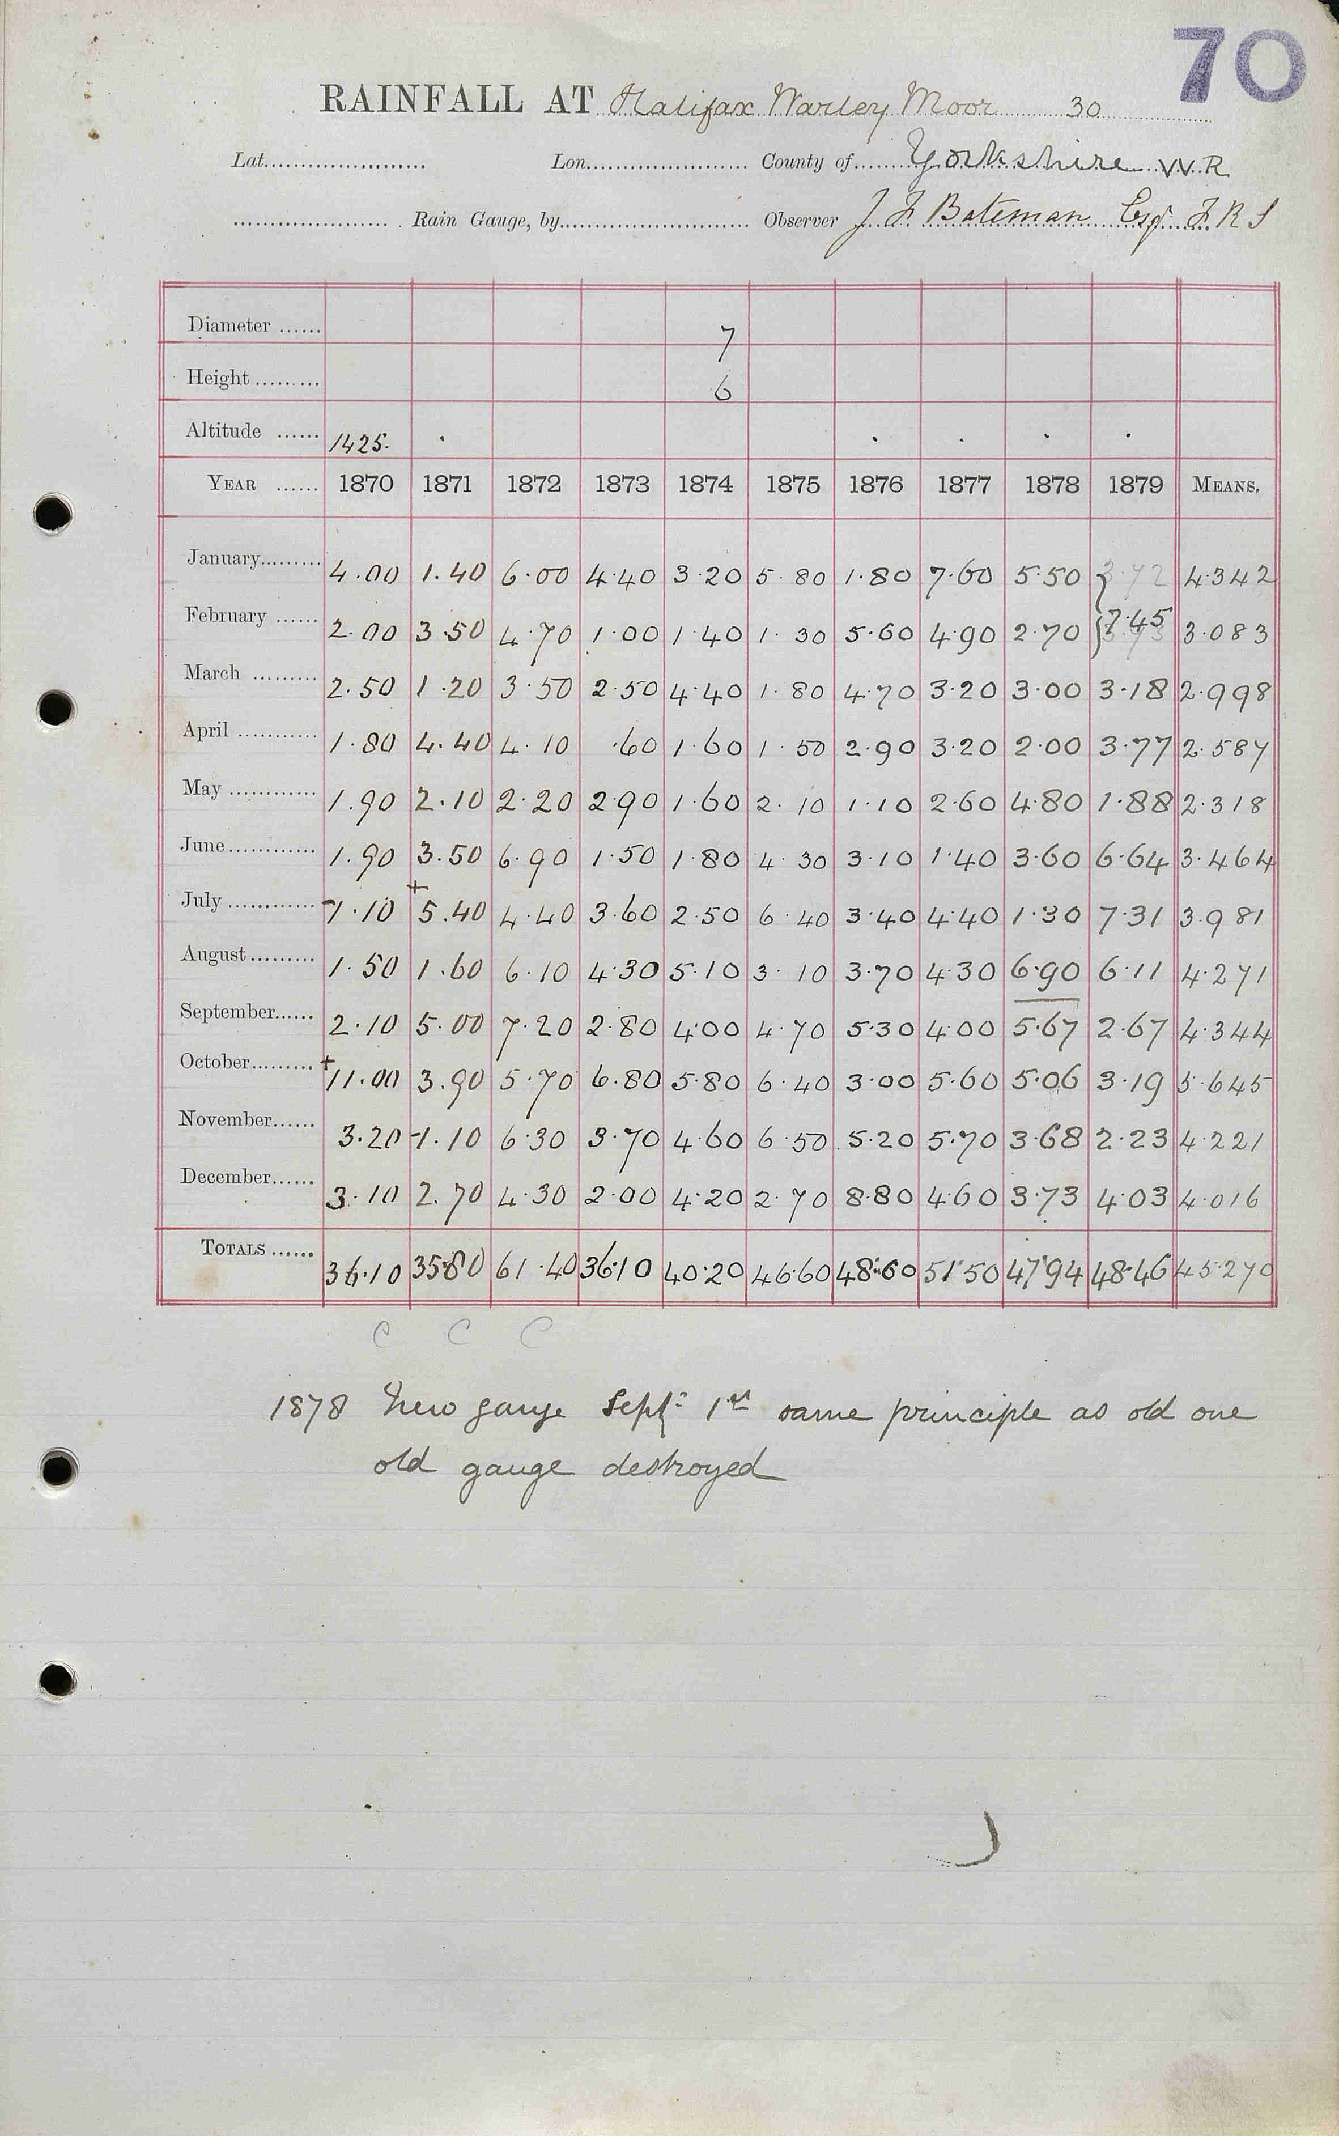 70
RAINFALL AT Halifax Warley Moor 30
Lat. Lon. County of Yorkshire W R
Rain Gauge, by Observer J F Bateman Esqr F R S
Diameter ...... 7
Height ......... 6
Altitude ...... 1425.
YEAR ...... 1870 1871 1872 1873 1874 1875 1876 1877 1878 1879 MEANS.
January......... 4.00 1.40 6.00 4.40 3.20 5.80 1.80 7.60 5.50 3.72 4.342
February ...... 2.00 3.50 4.70 1.00 1.40 1.30 5.60 4.90 2.70 7.45 3.73 3.083
March ......... 2.50 1.20 3.50 2.50 4.40 1.80 4.70 3.20 3.00 3.18 2.998
April ............ 1.80 4.40 4.10 .60 1.60 1.50 2.90 3.20 2.00 3.77 2.587
May ............ 1.90 2.10 2.20 2.90 1.60 2.10 1.10 2.60 4.80 1.88 2.318
June............ 1.90 3.50 6.90 1.50 1.80 4.30 3.10 1.40 3.60 6.64 3.464
July ............ 1.10 + 5.40 4.40 3.60 2.50 6.40 3.40 4.40 1.30 7.31 3.981
August......... 1.50 1.60 6.10 4.30 5.10 3.10 3.70 4.30 6.90 6.11 4.271
September...... 2.10 5.00 7.20 2.80 4.00 4.70 5.30 4.00 5.67 2.67 4.344
October......... + 11.00 3.90 5.70 6.80 5.80 6.40 3.00 5.60 5.06 3.19 5.645
November...... 3.20 -1.10 6.30 3.70 4.60 6.50 5.20 5.70 3.68 2.23 4.221
December...... 3.10 2.70 4.30 2.00 4.20 2.70 8.80 4.60 3.73 4.03 4.016
TOTALS ...... 36.10 35.80 61.40 36.10 40.20 46.60 48.60 51.50 47.94 48.46 45.270
C C C
1878 New gauge Sept: 1st same principle as old one
old gauge destroyed